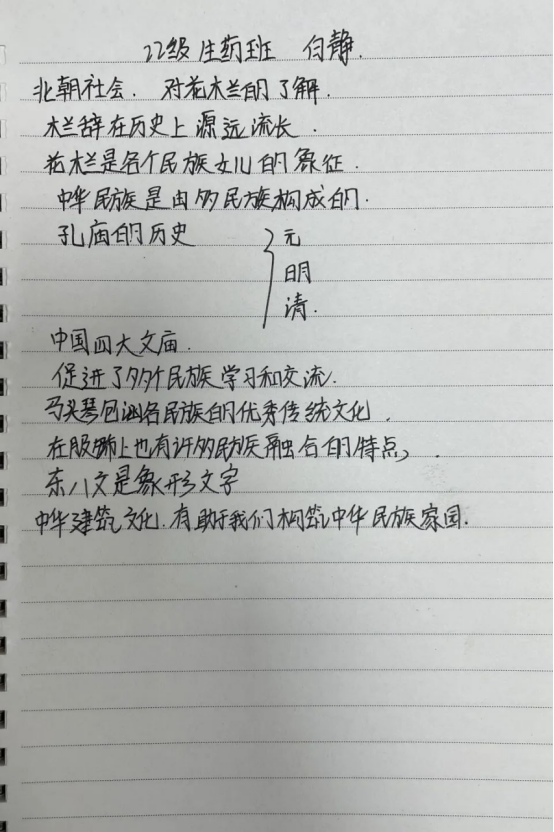 22级生药班 白静.
北朝社会. 对花木兰的了解.
木兰辞在历史上源远流长.
花木兰是各个民族女儿的象征.
中华民族是由多民族构成的.
孔庙的历史 元
明
清.
中国四大文庙.
促进了多个民族学习和交流.
马头琴包涵各民族的优秀传统文化.
在服饰上也有许多民族融合的特点, .
东八文是象形文字
中华建筑文化.有助于我们构筑中华民族家园.